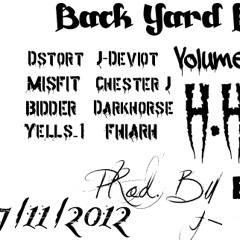 Back Yard
Dstort J-Deviot Volume
Misfit Chester J
Bidder Darkhorse H.H
Yells_1 Fhiarh
PRod. By
7/11/2012 J-